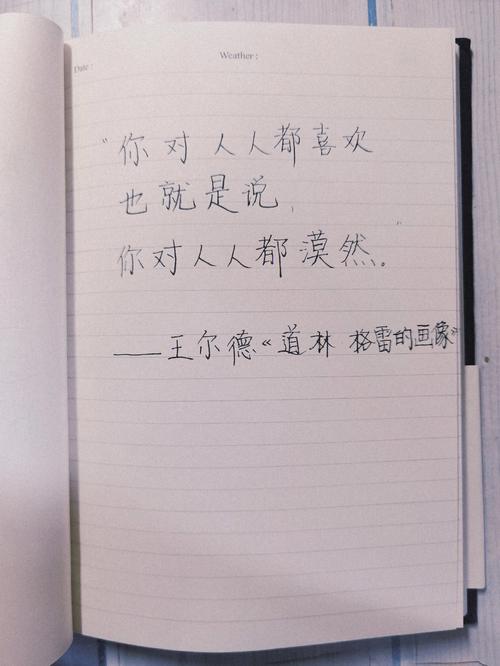 Date :
Weather :
"你对人人都喜欢
也就是说,
你对人人都漠然。"
——王尔德《道林 格雷的画像》